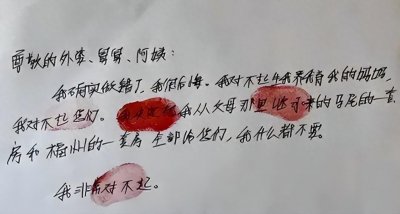 尊敬的外婆、舅舅、阿姨：
我确实做错了，我很后悔。我对不起生我养育我的妈妈，
我对不起您们。我从父母那里继承来的马尾的一套
房和福州的一套房全部给您们，我什么都不要。
我非常对不起。